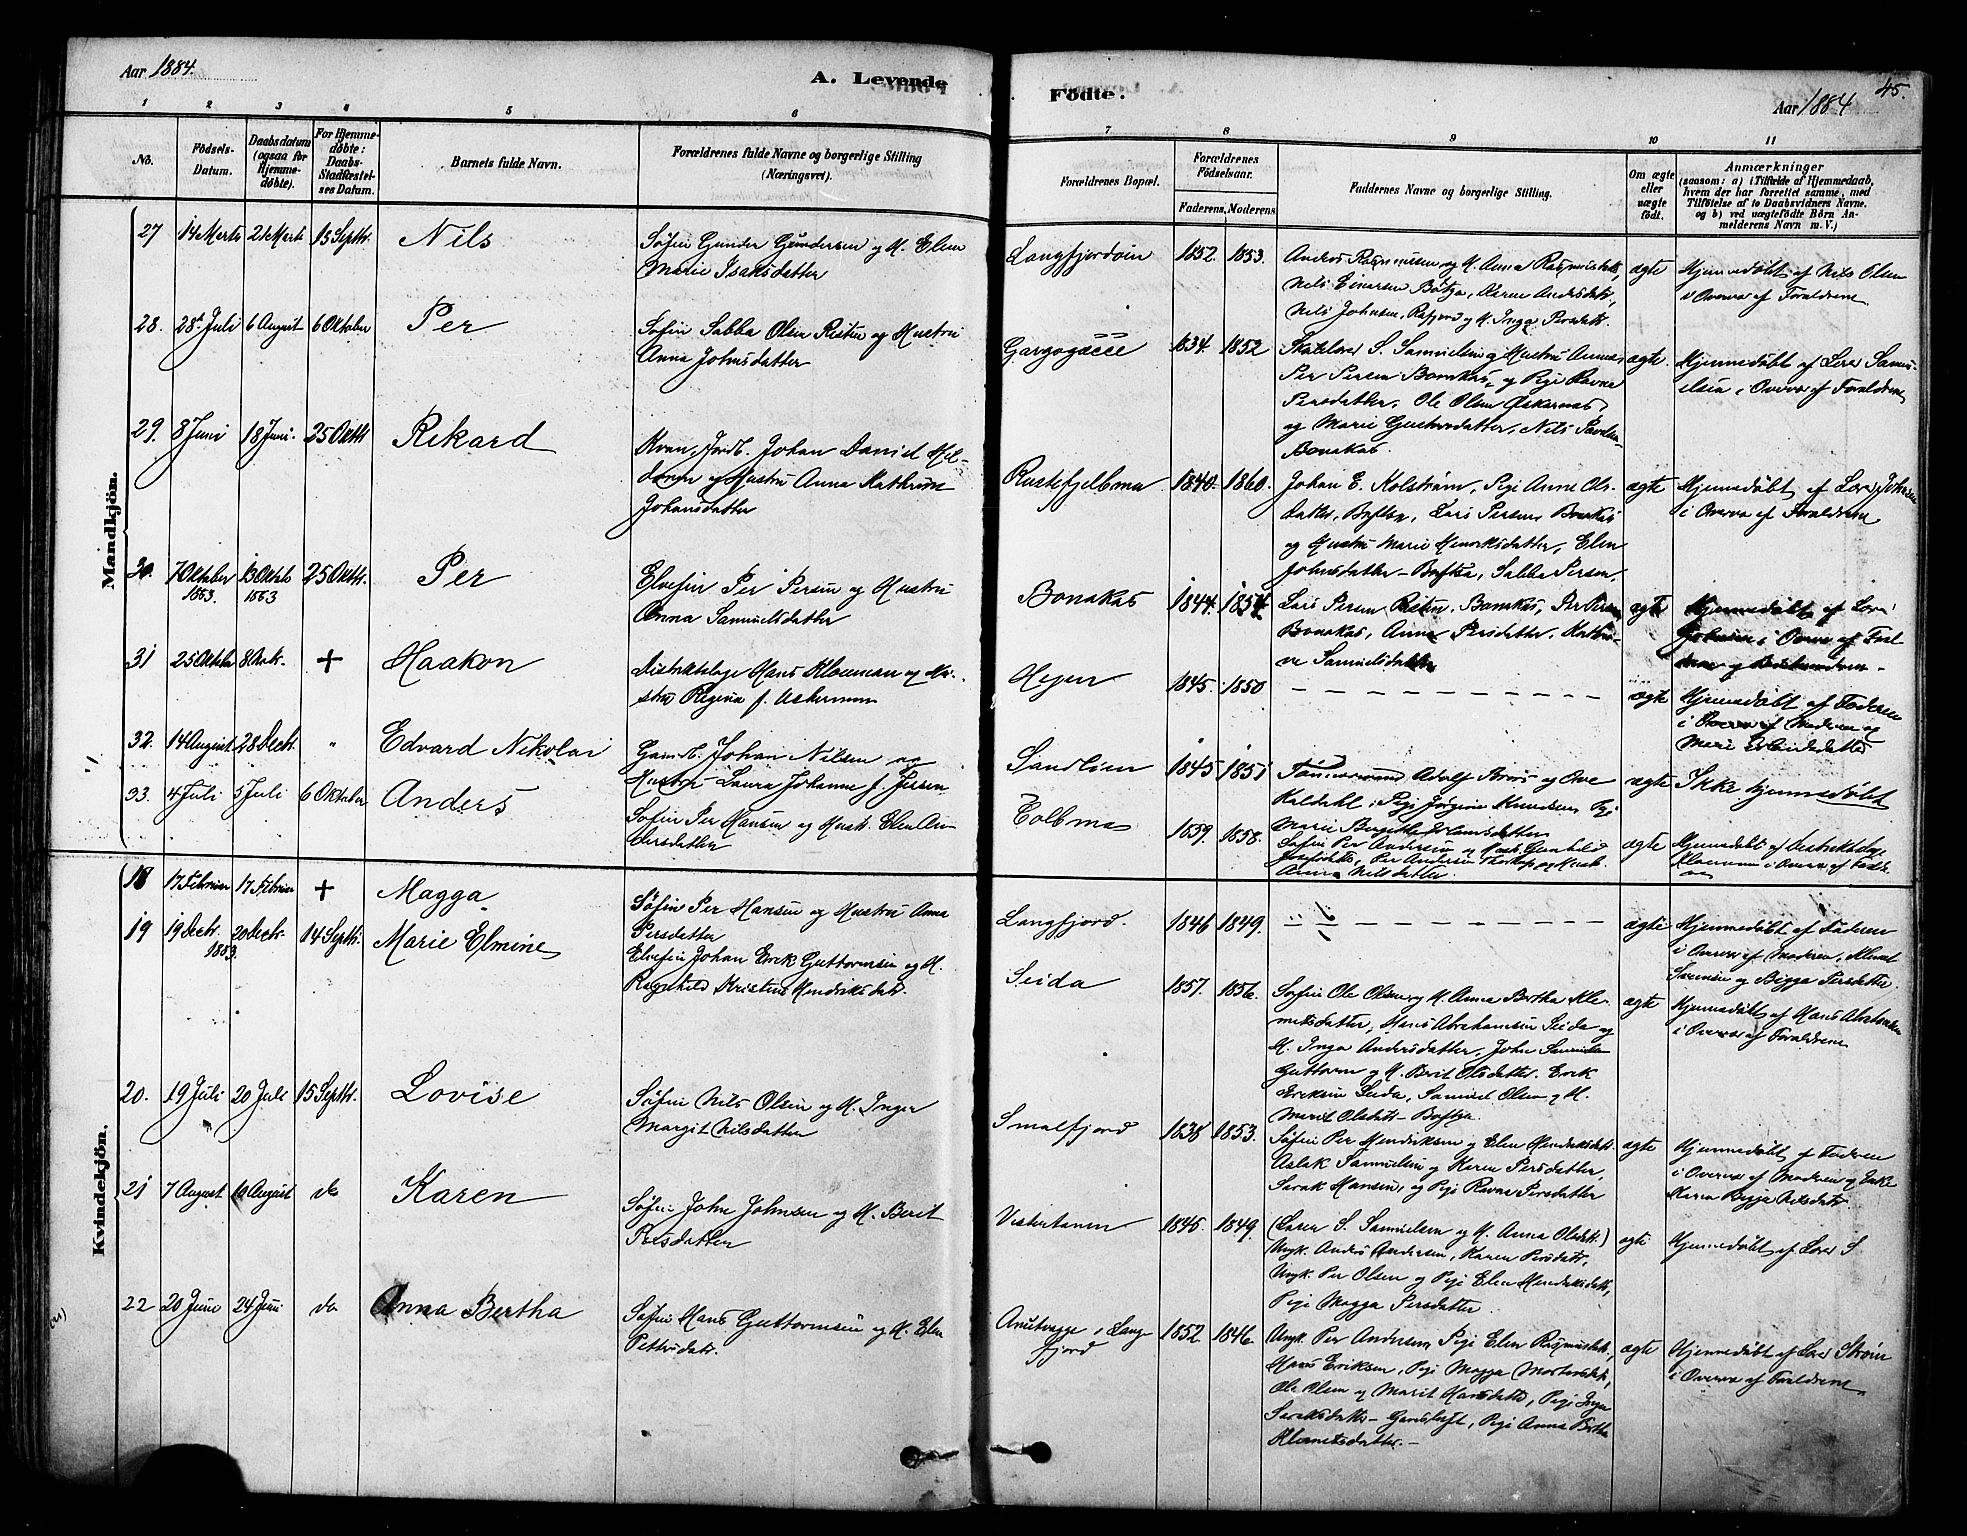 Aar 1884.
A. Levende
Födte.
45.
Aar 1884
1 2 3 4 5 6 7 8 9 10 11
No.
Födsels-Datum.
Daabsdatum (ogsaa for Hjemme-döbte).
For Hjemme-döbte: Daabs-Stadfæstel-ses Datum.
Barnets fulde Navn.
Forældrenes fulde Navne og borgerlige Stilling (Næringsvei).
Forældrenes Bopæl.
Forældrenes Födselsaar.
Faderens. Moderens
Faddernes Navne og borgerlige Stilling.
Om ægte eller uægte födt.
Anmærkninger
(saasom: a) i Tilfælde af Hjemmedaab, hvem der har forrettet samme, med Tilföielse af to Daabsvidners Navne. og b) ved uægtefödte Börn An-melderens Navn m. V.)
Mandkjön.
27 14 Marts 21 Marts 15 Septbr. Nils
Søfin Gunder Gundersen og H. Elen
Marie Isaksdatter
Langfjordein 1852. 1853.
Anders Rasmussen og H. Anna Rasmusdatt.,
Nils Einarsen Bøftsa, Karen Andersdatt.,
Nils Johnsen, og H. Inga Persdatt.
ægte
Hjemmedøbt af Nils Olsen
i Overvær af Forældrene
28. 28 Juli 6 August 6 Oktober Per
Søfin Sabba Olsen Risten og Hustru
Anna Johnsdatter
Gargogæcce 1834. 1852
S. Samuelsen og Hustru Anna
Per Persen Bonakas, og Pige Ravna
Persdatter, Ole Olsen
og Marie Gustavsdatter, Nils
Bonakas
ægte.
Hjemmedøbt af Lærer Samu-
elsen i Overvær af Forældrene
29. 8 Juni 18 Juni. 25 Oktbr Rikard
Kvæn, Jordb. Johan Daniel
og Hustru Anna Kathrine
Johansdatter
Rustefjelbma 1840. 1860.
Johan E. Kolstrøm, Pige Anne Ols-
datter, Bøftsa, Lars Persen, Bonakas
og Hustru Marie Henriksdatter, Elen
Johnsdatter Bøftsa, Sabba Persen,
ægte
Hjemmedøbt af Lærer Johnsen
i Overvær af Forældrene
30. 7 Oktober 1883. 13 Oktb 1883 25 Oktbr. Per
Elvefin Per Persen og Hustru
Anna Samuelsdatter
Bonakas 1844. 1854.
Lars Persen Risten, Bonakas, Per Persen
Bonakas, Anna Persdatter, Kathri-
ne Samuelsdatter
ægte
Hjemmedøbt af Lærer
Johnsen i Overvær af Foræl-
drene og
31 25 Oktober + Haakon
Distriktslæge Hans Kloumann og Hu-
stru Regina f.
1845. 1850
ægte
Hjemmedøbt af Faderen
i Overvær af Moderen og
Marie
32. 14 August 28 Decbr. " Edvard Nikolai
Johan Nilsen og
Hustru Laura Johanne f. Jessen
Sandlien 1845 1851
Adolf og Ove
Kaldahl, Pige Jørgine Knudsen, Pige
Marie Birgitte
ægte
Ikke hjemmedøbt
33. 4 Juli 5 Juli 6 Oktober Anders
Søfin Per Hansen og Hust. Elen An-
dersdatter
Tolbma 1859. 1858.
Søfin Per Andersen og Hust. Gunhild
Josefsdatt., Per Andersen og Hust.
Anna Nilsdatter.
ægte
Hjemmedøbt af Distriktslæge
Kloumann i Overvær af Foræld-
Kvindekjön.
18 17 Februar 17 Februar + Magga
Søfin Per Hansen og Hustru Anna
Persdatter
Langfjord. 1846 1849.
ægte
Hjemmedøbt af Faderen
i Overvær af Moderen, Klemet
Sørensen og Bigga Persdatter
19 19 Decbr. 1883. 20 Decbr. 14 Septbr. Marie Elmine
Elvefin Johan Erik Guttormsen og H.
Ragnhild Kristine Hendriksdatt.
Seida 1857. 1856.
Søfin Ole Olsen og H. Anna Bertha Kle-
metsdatter, Hans Abrahamsen Seida og
H. Inga Andersdatter, John
Guttorm og H. Berit Olsdatter. Erik
Eriksen Seida, Samuel Olsen og H.
Marit Olsdatt- Bøftsa.
ægte
Hjemmedøbt af Hans Abrahamsen
i Overvær af Forældrene
20. 19 Juli 20 Juli 15 Septbr. Lovise
Søfin Nils Olsen og H. Inger
Margit Nilsdatter
Smalfjord 1838 1853.
Søfin Per Hendriksen og Elen Hendriksdatt.
Aslak Samuelsen og Karen Persdatter,
Hansen, og Pige Ravna Persdatter
ægte
Hjemmedøbt af Faderen
i Overvær af Moderen og Enke
Karen Bigga Nilsdatt.
21 7 August 10 August do Karen
Søfin John Johnsen og H. Berit
Persdatter
Vestertanen 1845. 1849.
(Lærer S. Samuelsen og H. Anna Olsdatt.)
Ungk. Anders Andersen, Karen Persdatt.,
Ungk. Per Olsen og Pige Elen Hendriksdatt.,
Pige Magga Persdatter.
ægte
Hjemmedøbt af Lærer S.
22 20 Juni 24 Juni do Anna Bertha
Søfin Hans Guttormsen og H. Elen
Pettersdatt.
i Lang-
fjord
1852. 1846.
Ungk. Per Andersen, Pige Elen Rasmusdatt.,
Hans Eriksen, Pige Magga Mortensdatt.,
Ole Olsen og Marit Hansdatter, Pige Inga
Pige Anna Bertha
Klemetsdatter.-
ægte
Hjemmedøbt af Lærer Strøm
i Overvær af Forældrene